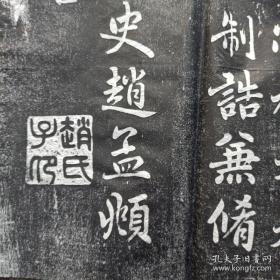 制誥兼脩
史趙孟頫
趙氏子昂
孔夫子旧书网